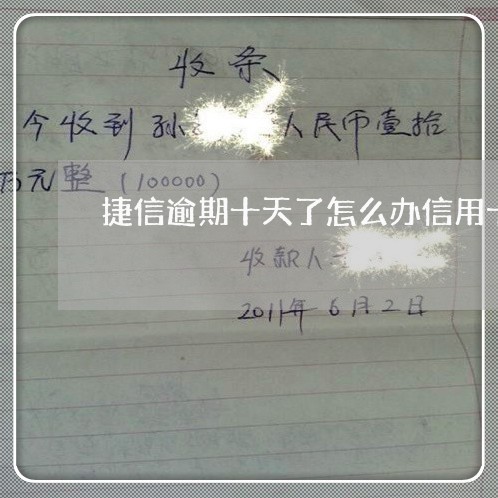 收条
今收到孙 人民币壹拾
万元整(100000)
捷信逾期十天了怎么办信用
收款人
2011年6月2日